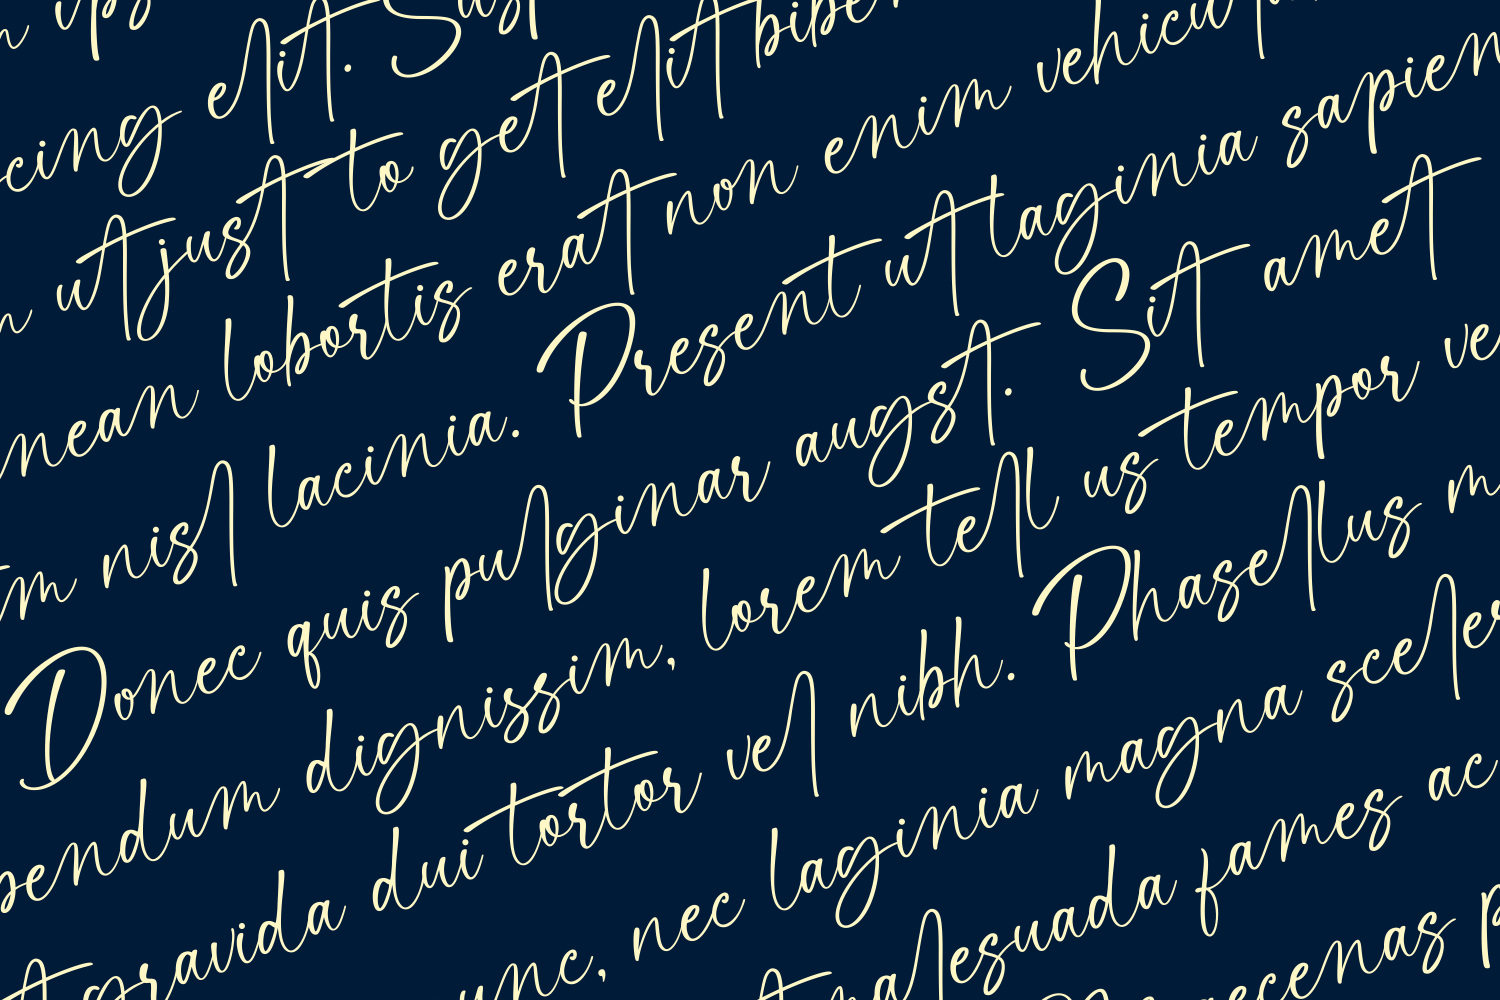 cing elit. Sus
ut just to get elit biben
nean lobortis erat non enim vehicu
m nisl lacinia. Present ut laginia sapien
Donec quis pulginar augst. Sit amet
pendum dignissim, lorem tell us tempor ve
gravida dui tortor vel nibh. Phasellus m
unc, nec laginia magna sceler
malesuada fames ac
ecenas p